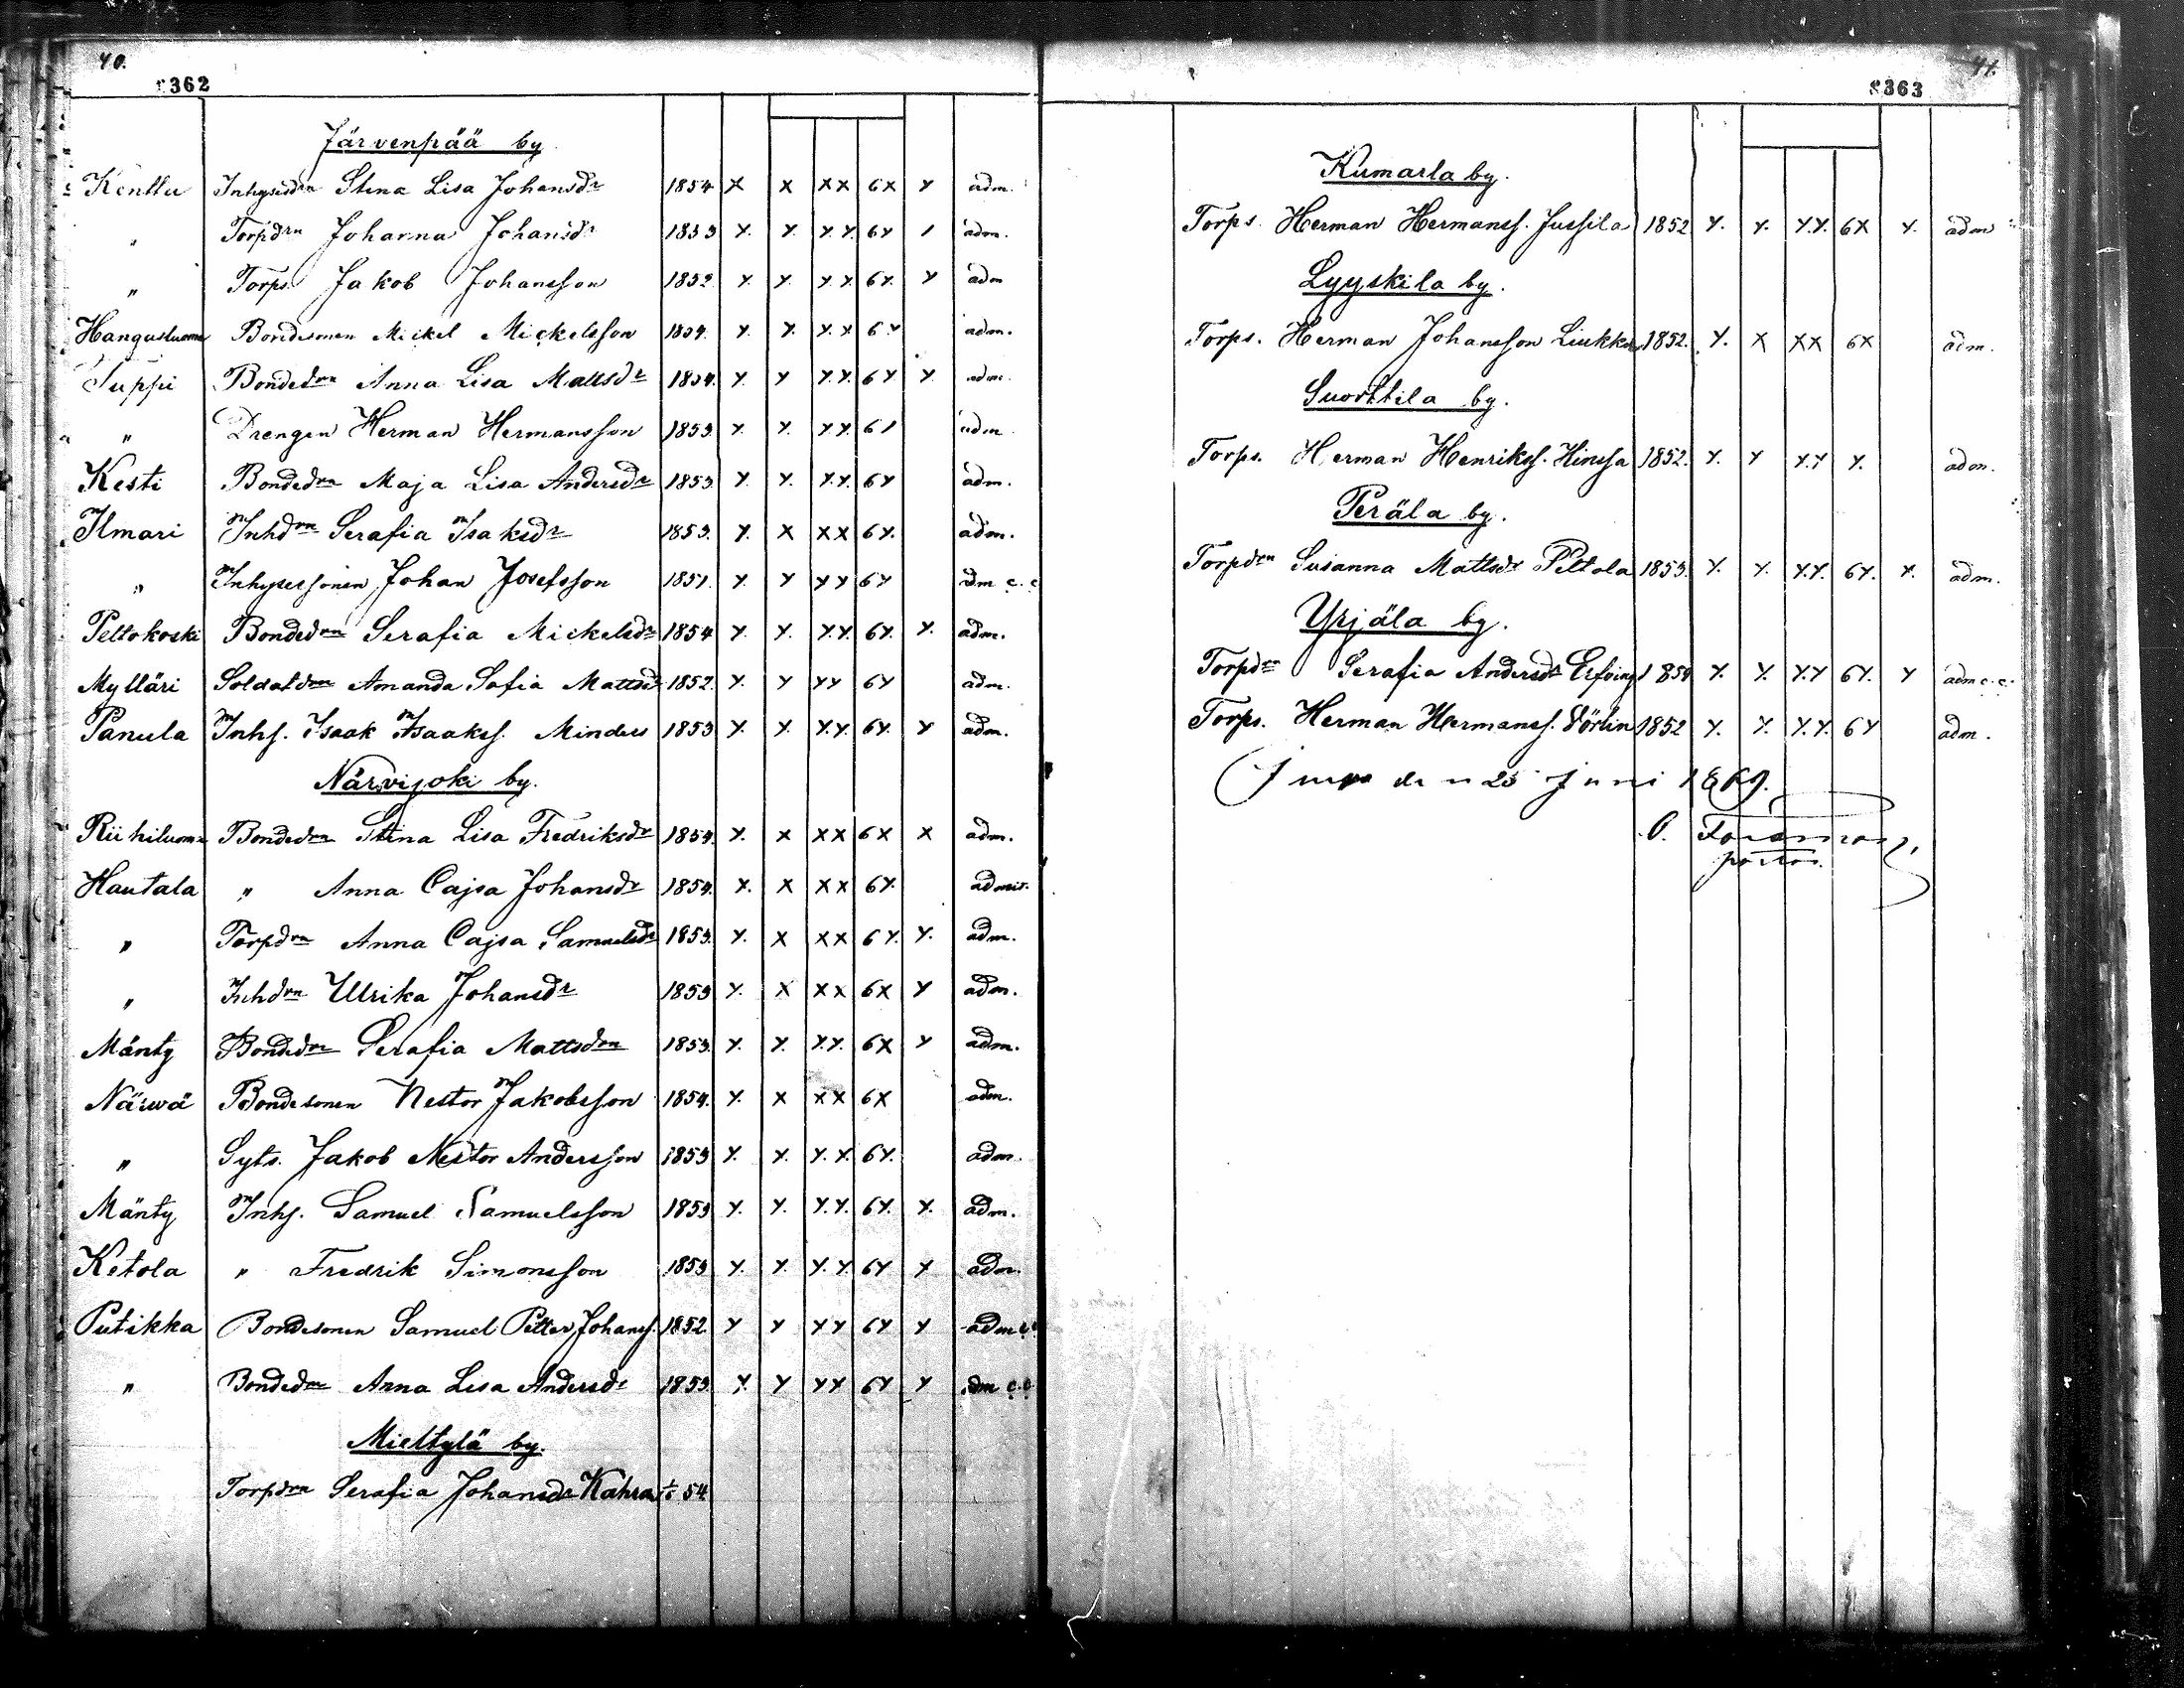 40.
362
Järvenpää by
Kenttu Inhysesdrn Stina Lisa Johansdr 1854 X X XX 6X X adm.
" Torpdrn Johanna Johansdr 1853 X. X. X.X. 6X 1 adm.
" Torps. Jakob Johansson 1852. X. X. X.X. 6X. X adm
Hangasluoma Bondesonen Mickel Mickelsson 1854. X. X. X.X 6X adm.
Suppi Bondedrn Anna Lisa Mattsdr 1854. X. X X.X. 6X X. adm.
" Drengen Herman Hermansson 1853. X. X. X.X. 61 adm
Kesti Bondedrn Maja Lisa Andersdr 1853 X X. X.X. 6X adm.
Ilmari Inhdrn Serafia Isaksdr 1853. X. X XX 6X. adm.
" Inhysessonen Johan Josefsson 1851. X. X XX 6X adm c.c
Peltokoski Bondedrn Serafia Mickelsdr 1854 X. X. X.X. 6X. X. adm.
Mylläri Soldatdrn Amanda Sofia Mattsdr 1852. X. X XX 6X adm.
Panula Inhs. Isaak Isaakss. Minders 1853 X. X. X.X. 6X. X adm.
Närvijoki by.
Riihiluoma Bondedrn Stina Lisa Fredriksdr 1854. X. X XX 6X X adm.
Hautala " Anna Cajsa Johansdr 1854. X. X XX 6X. admit.
" Torpdrn Anna Cajsa Samuelsdr 1853. X. X XX 6X. X. adm.
" Inhdrn Ulrika Johansdr 1853 X. X XX 6X X adm.
Mänty Bondedrn Serafia Mattsdrn 1853. X. X. X.X. 6X X adm.
Närwä Bondesonen Nestor Jakobsson 1854. X. X XX 6X adm.
" Syts. Jakob Nestor Andersson 1853 X. X. X.X. 6X. adm.
Mänty Inhs. Samuel Samuelsson 1853 X. X. X.X. 6X. X. adm.
Ketola " Fredrik Simonsson 1853 X. X. X.X 6X X adm.
Putikka Bondesonen Samuel Petter Johanss. 1852 X X XX 6X X adm c.c
" Bondedrn Anna Lisa Andersdr 1853 X. X XX 6X X adm c.c
Mieltylä by.
Torpdrn Serafia Johansdr Kahra 54
41.
363
Kumarla by.
Torps. Herman Hermanss. Jussila 1852 X. X. X.X. 6X X. adm
Lyyskila by.
Torps. Herman Johansson Liukku 1852. X. X XX 6X adm.
Suorttila by.
Torps. Herman Henrikss. Hinssa 1852. X. X X.X X. adm.
Peräla by.
Torpdrn Susanna Mattsdr Peltola 1853. X. X. X.X. 6X. X. adm.
Yrjäla by.
Torpdrn Serafia Andersdr Erfving 1854 X. X. X.X 6X. X adm c.c.
Torps. Herman Hermanss. Störlin 1852 X. X. X.X. 6X adm.
den 25 Juni 1869.
O.
pastor.